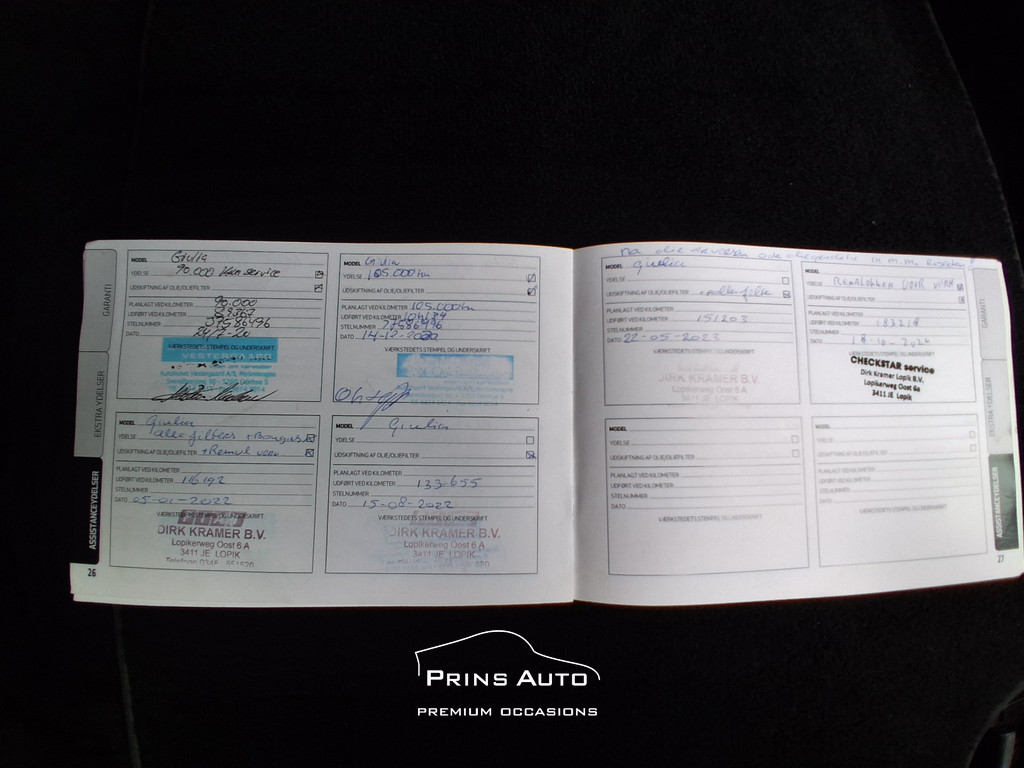 GARANTI
EKSTRA YDELSER
ASSISTANCEYDELSER
MODEL Giulia
YDELSE 90.000 km service
UDSKIFTNING AF OLIE/OLIEFILTER
PLANLAGT VED KILOMETER 90.000
UDFØRT VED KILOMETER
STELNUMMER 77586496
DATO
VÆRKSTEDETS STEMPEL OG UNDERSKRIFT
MODEL Giulia
YDELSE 105.000 km
UDSKIFTNING AF OLIE/OLIEFILTER
PLANLAGT VED KILOMETER 105.000 km
UDFØRT VED KILOMETER
STELNUMMER 77586496
DATO 14-12-2020
VÆRKSTEDETS STEMPEL OG UNDERSKRIFT
MODEL Giulia
YDELSE alle filters + Bougies
UDSKIFTNING AF OLIE/OLIEFILTER + Remol
PLANLAGT VED KILOMETER
UDFØRT VED KILOMETER 116192
STELNUMMER
DATO 05-01-2022
VÆRKSTEDETS STEMPEL OG UNDERSKRIFT
DIRK KRAMER B.V.
Lopikerweg Oost 6 A
3411 JE LOPIK
MODEL Giulia
YDELSE
UDSKIFTNING AF OLIE/OLIEFILTER
PLANLAGT VED KILOMETER
UDFØRT VED KILOMETER 133.655
STELNUMMER
DATO 15-08-2022
VÆRKSTEDETS STEMPEL OG UNDERSKRIFT
DIRK KRAMER B.V.
Lopikerweg Oost 6 A
3411 JE LOPIK
26
MODEL Giulia
YDELSE
UDSKIFTNING AF OLIE/OLIEFILTER
PLANLAGT VED KILOMETER
UDFØRT VED KILOMETER 151203
STELNUMMER
DATO 22-05-2023
VÆRKSTEDETS STEMPEL OG UNDERSKRIFT
DIRK KRAMER B.V.
Lopikerweg Oost 6 A
3411 JE LOPIK
MODEL
YDELSE REMBLOKKEN VOOR
UDSKIFTNING AF OLIE/OLIEFILTER
PLANLAGT VED KILOMETER
UDFØRT VED KILOMETER
STELNUMMER
DATO
VÆRKSTEDETS STEMPEL OG UNDERSKRIFT
CHECKSTAR service
Dirk Kramer Lopik B.V.
Lopikerweg Oost 6a
3411 JE Lopik
MODEL
YDELSE
UDSKIFTNING AF OLIE/OLIEFILTER
PLANLAGT VED KILOMETER
UDFØRT VED KILOMETER
STELNUMMER
DATO
VÆRKSTEDETS STEMPEL OG UNDERSKRIFT
MODEL
YDELSE
UDSKIFTNING AF OLIE/OLIEFILTER
PLANLAGT VED KILOMETER
UDFØRT VED KILOMETER
STELNUMMER
DATO
VÆRKSTEDETS STEMPEL OG UNDERSKRIFT
GARANTI
EKSTRA YDELSER
ASSISTANCEYDELSER
27
PRINS AUTO
PREMIUM OCCASIONS